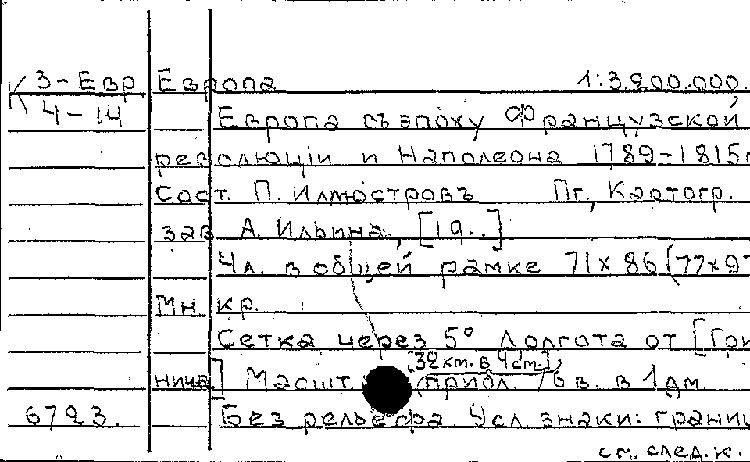 К 3-Евр Европа 1:3.200.000.
4-14 Европа въ эпоху Французской
революціи и Наполеона 1789-1815г
Сост. П. Иллюстровъ Пг, Картогр.
зав А. Ильина, [19..]
4л. в общей рамке 71х86 (77х97
Мн. кр.
Сетка через 5° Долгота от [Гри
нича] Масшт. [32 км. в 1 см.]
(прибл. 76 в. в 1 дм.
6723. Без рельефа. Усл знаки: границ
см. след. к.